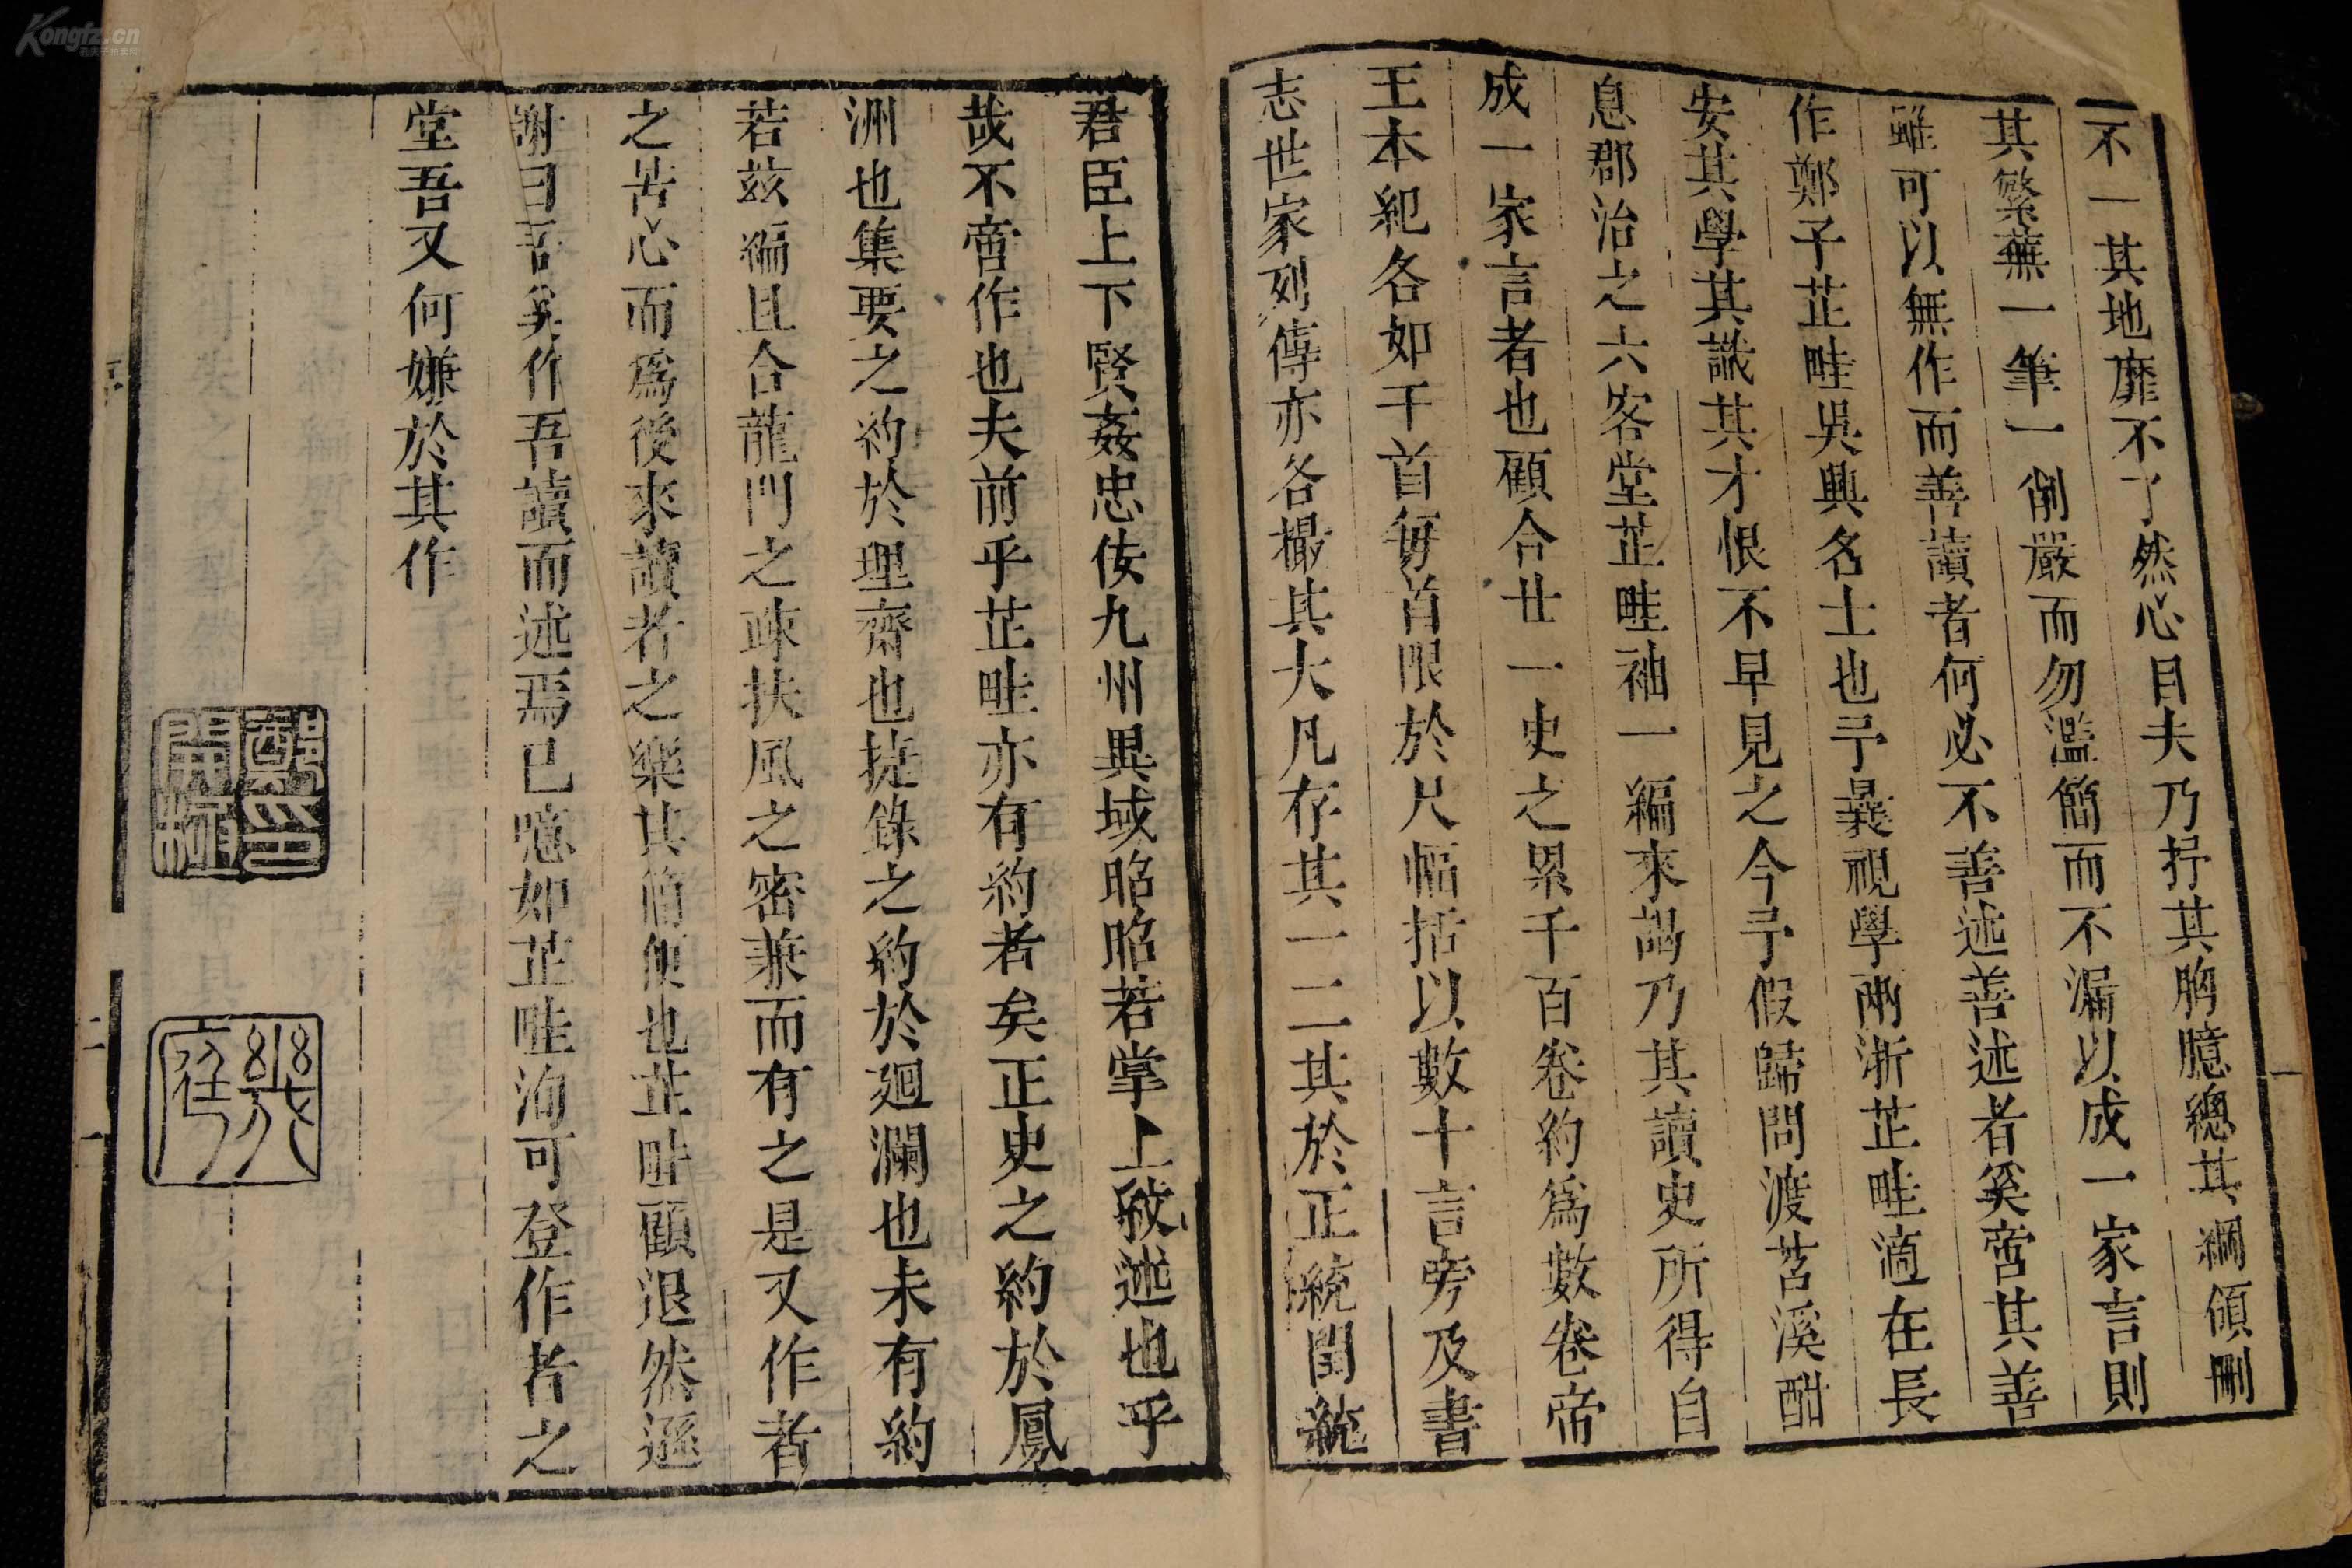 不一其地靡不了然心目夫乃抒其胸臆總其綱領刪
其繁蕪一筆一削嚴而勿濫簡而不漏以成一家言則
雖可以無作而善讀者何必不善述善述者奚啻其善
作鄭子芷畦吳興名士也予曩視學兩浙芷畦適在長
安其學其識其才恨不早見之今予假歸問渡苕溪酣
息郡治之六客堂芷畦袖一編來謁乃其讀史所得自
成一家言者也顧合廿一史之累千百卷約爲數卷帝
王本紀各如干首每首限於尺幅括以數十言旁及書
志世家列傳亦各撮其大凡存其一二其於正統閏統
君臣上下賢姦忠佞九州異域昭昭若掌上敘述也乎
哉不啻作也夫前乎芷畦亦有約者矣正史之約於鳳
洲也集要之約於理齋也捷錄之約於廻瀾也未有約
若茲編且合龍門之疎扶風之密兼而有之是又作者
之苦心而爲後來讀者之樂其簡便也芷畦顧退然遜
謝曰吾奚作吾讀而述焉已噫如芷畦洵可登作者之
堂吾又何嫌於其作
鄭印
開極
幾庭
序
二
一
Kongfz.cn